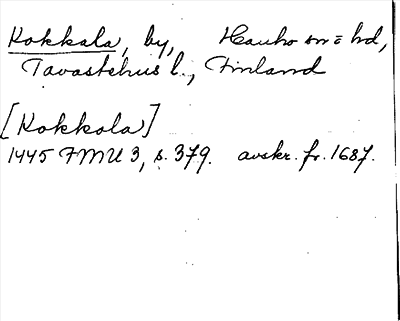 Kokkala, by, Hauho sn = hd,
Tavastehus l., Finland
[Kokkola]
1445 FMU 3, s. 379. avskr. fr. 1687.